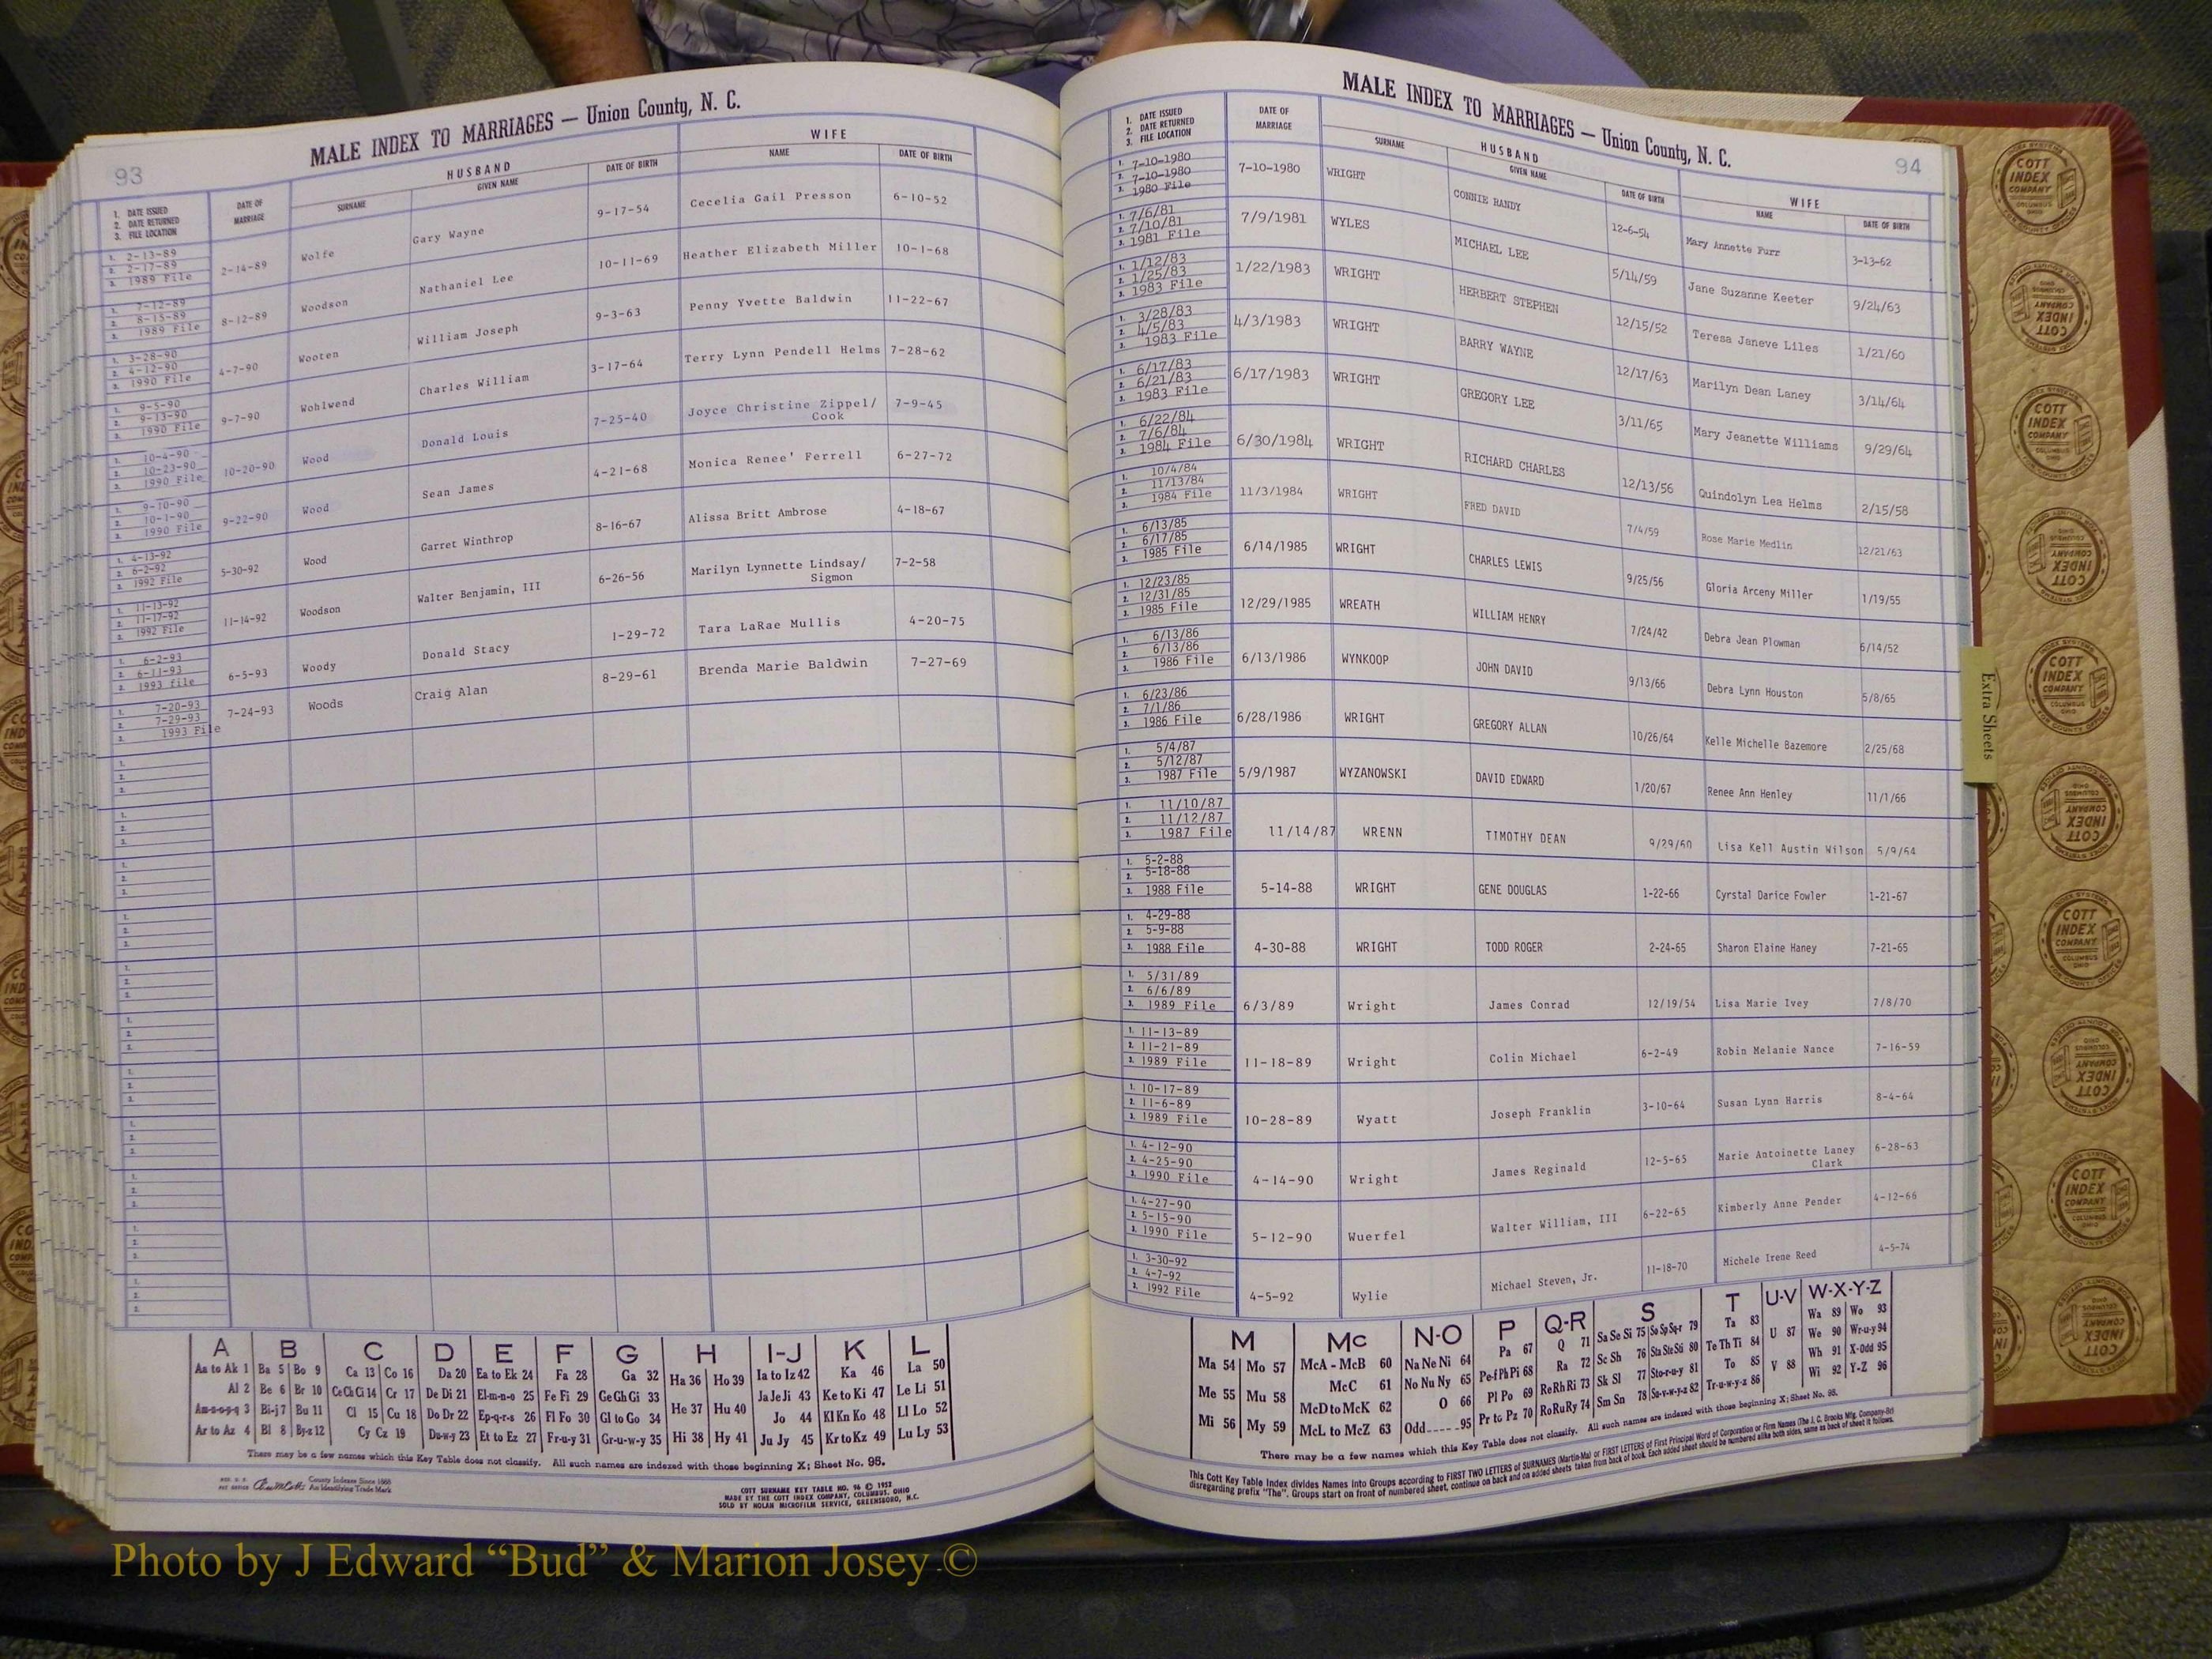 93
MALE INDEX TO MARRIAGES — Union County, N. C.
1. DATE ISSUED
2. DATE RETURNED
3. FILE LOCATION
DATE OF MARRIAGE
HUSBAND
SURNAME GIVEN NAME DATE OF BIRTH
WIFE
NAME DATE OF BIRTH
1. 2-13-89
2. 2-17-89
3. 1989 File
2-14-89 Wolfe Gary Wayne 9-17-54 Cecelia Gail Presson 6-10-52
1. 7-12-89
2. 8-15-89
3. 1989 File
8-12-89 Woodson Nathaniel Lee 10-11-69 Heather Elizabeth Miller 10-1-68
1. 3-28-90
2. 4-12-90
3. 1990 File
4-7-90 Wooten William Joseph 9-3-63 Penny Yvette Baldwin 11-22-67
1. 9-5-90
2. 9-13-90
3. 1990 File
9-7-90 Wohlwend Charles William 3-17-64 Terry Lynn Pendell Helms 7-28-62
1. 10-4-90
2. 10-23-90
3. 1990 File
10-20-90 Wood Donald Louis 7-25-40 Joyce Christine Zippel/ 7-9-45
Cook
1. 9-10-90
2. 10-1-90
3. 1990 File
9-22-90 Wood Sean James 4-21-68 Monica Renee' Ferrell 6-27-72
1. 4-13-92
2. 6-2-92
3. 1992 File
5-30-92 Wood Garret Winthrop 8-16-67 Alissa Britt Ambrose 4-18-67
1. 11-13-92
2. 11-17-92
3. 1992 File
11-14-92 Woodson Walter Benjamin, III 6-26-56 Marilyn Lynnette Lindsay/ 7-2-58
Sigmon
1. 6-2-93
2. 6-11-93
3. 1993 file
6-5-93 Woody Donald Stacy 1-29-72 Tara LaRae Mullis 4-20-75
1. 7-20-93
2. 7-29-93
3. 1993 File
7-24-93 Woods Craig Alan 8-29-61 Brenda Marie Baldwin 7-27-69
A B C D E F G H I-J K L
Aa to Ak 1 Ba 5 Bo 9 Ca 13 Co 16 Da 20 Ea to Ek 24 Fa 28 Ga 32 Ha 36 Ho 39 Ia to Iz 42 Ka 46 La 50
Al 2 Be 6 Br 10 Ce Ch Ci 14 Cr 17 De Di 21 El-m-n-o 25 Fe Fi 29 Ge Gh Gi 33 He 37 Hu 40 Ja Je Ji 43 Ke to Ki 47 Le Li 51
Am-n-o-p-q 3 Bi-j 7 Bu 11 Cl 15 Cu 18 Do Dr 22 Ep-q-r-s 26 Fl Fo 30 Gl to Go 34 Jo 44 Kl Kn Ko 48 Ll Lo 52
Ar to Az 4 Bl 8 By-z 12 Cy Cz 19 Du-w-y 23 Et to Ez 27 Fr-u-y 31 Gr-u-w-y 35 Hi 38 Hy 41 Ju Jy 45 Kr to Kz 49 Lu Ly 53
There may be a few names which this Key Table does not classify. All such names are indexed with those beginning X; Sheet No. 95.
County Indexes Since 1888
An Identifying Trade Mark
COTT SURNAME KEY TABLE NO. 96 © 1952
MADE BY THE COTT INDEX COMPANY, COLUMBUS, OHIO
SOLD BY NOLAN MICROFILM SERVICE, GREENSBORO, N.C.
MALE INDEX TO MARRIAGES — Union County, N. C.
94
1. DATE ISSUED
2. DATE RETURNED
3. FILE LOCATION
DATE OF MARRIAGE
HUSBAND
SURNAME GIVEN NAME DATE OF BIRTH
WIFE
NAME DATE OF BIRTH
1. 7-10-1980
2. 7-10-1980
3. 1980 File
7-10-1980 WRIGHT CONNIE RANDY 12-6-54 Mary Annette Furr 3-13-62
1. 7/6/81
2. 7/10/81
3. 1981 File
7/9/1981 WYLES MICHAEL LEE 5/14/59 Jane Suzanne Keeter 9/24/63
1. 1/12/83
2. 1/25/83
3. 1983 File
1/22/1983 WRIGHT HERBERT STEPHEN 12/15/52 Teresa Janeve Liles 1/21/60
1. 3/28/83
2. 4/5/83
3. 1983 File
4/3/1983 WRIGHT BARRY WAYNE 12/17/63 Marilyn Dean Laney 3/14/64
1. 6/17/83
2. 6/21/83
3. 1983 File
6/17/1983 WRIGHT GREGORY LEE 3/11/65 Mary Jeanette Williams 9/29/64
1. 6/22/84
2. 7/6/84
3. 1984 File
6/30/1984 WRIGHT RICHARD CHARLES 12/13/56 Quindolyn Lea Helms 2/15/58
1. 10/4/84
2. 11/13/84
3. 1984 File
11/3/1984 WRIGHT FRED DAVID 7/4/59 Rose Marie Medlin 12/21/63
1. 6/13/85
2. 6/17/85
3. 1985 File
6/14/1985 WRIGHT CHARLES LEWIS 9/25/56 Gloria Arceny Miller 1/19/55
1. 12/23/85
2. 12/31/85
3. 1985 File
12/29/1985 WREATH WILLIAM HENRY 7/24/42 Debra Jean Plowman 6/14/52
1. 6/13/86
2. 6/13/86
3. 1986 File
6/13/1986 WYNKOOP JOHN DAVID 9/13/66 Debra Lynn Houston 5/8/65
1. 6/23/86
2. 7/1/86
3. 1986 File
6/28/1986 WRIGHT GREGORY ALLAN 10/26/64 Kelle Michelle Bazemore 2/25/68
1. 5/4/87
2. 5/12/87
3. 1987 File
5/9/1987 WYZANOWSKI DAVID EDWARD 1/20/67 Renee Ann Henley 11/1/66
1. 11/10/87
2. 11/12/87
3. 1987 File
11/14/87 WRENN TIMOTHY DEAN 9/29/60 Lisa Kell Austin Wilson 5/9/64
1. 5-2-88
2. 5-18-88
3. 1988 File
5-14-88 WRIGHT GENE DOUGLAS 1-22-66 Cyrstal Darice Fowler 1-21-67
1. 4-29-88
2. 5-9-88
3. 1988 File
4-30-88 WRIGHT TODD ROGER 2-24-65 Sharon Elaine Haney 7-21-65
1. 5/31/89
2. 6/6/89
3. 1989 File
6/3/89 Wright James Conrad 12/19/54 Lisa Marie Ivey 7/8/70
1. 11-13-89
2. 11-21-89
3. 1989 File
11-18-89 Wright Colin Michael 6-2-49 Robin Melanie Nance 7-16-59
1. 10-17-89
2. 11-6-89
3. 1989 File
10-28-89 Wyatt Joseph Franklin 3-10-64 Susan Lynn Harris 8-4-64
1. 4-12-90
2. 4-25-90
3. 1990 File
4-14-90 Wright James Reginald 12-5-65 Marie Antoinette Laney 6-28-63
Clark
1. 4-27-90
2. 5-15-90
3. 1990 File
5-12-90 Wuerfel Walter William, III 6-22-65 Kimberly Anne Pender 4-12-66
1. 3-30-92
2. 4-7-92
3. 1992 File
4-5-92 Wylie Michael Steven, Jr. 11-18-70 Michele Irene Reed 4-5-74
M Mc N-O P Q-R S T U-V W-X-Y-Z
Ma 54 Mo 57 McA - McB 60 Na Ne Ni 64 Pa 67 Q 71 Sa Se Si 75 So Sp Sq-r 79 Ta 83 U 87 Wa 89 Wo 93
Me 55 Mu 58 McC 61 No Nu Ny 65 Pe-f Ph Pi 68 Ra 72 Sc Sh 76 Sta Ste Sti 80 Te Th Ti 84 We 90 Wr-u-y 94
McD to McK 62 O 66 Pl Po 69 Re Rh Ri 73 Sk Sl 77 Sto-r-u-y 81 To 85 V 88 Wh 91 X-Odd 95
Mi 56 My 59 McL to McZ 63 Odd 95 Pr to Pz 70 Ro Ru Ry 74 Sm Sn 78 Su-v-w-y-z 82 Tr-u-w-y-z 86 Wi 92 Y-Z 96
There may be a few names which this Key Table does not classify. All such names are indexed with those beginning X; Sheet No. 95.
This Cott Key Table Index divides Names into Groups according to FIRST TWO LETTERS of SURNAMES (Martin-Ma) or FIRST LETTERS of First Principal Word of Corporation or Firm Names (The J. C. Brooks Mfg. Company-Br)
disregarding prefix "The". Groups start on front of numbered sheet, continue on back and on added sheets taken from back of book. Each added sheet should be numbered alike both sides, same as back of sheet it follows.
Extra Sheets
COTT INDEX COMPANY COLUMBUS OHIO
Photo by J Edward “Bud” & Marion Josey ©